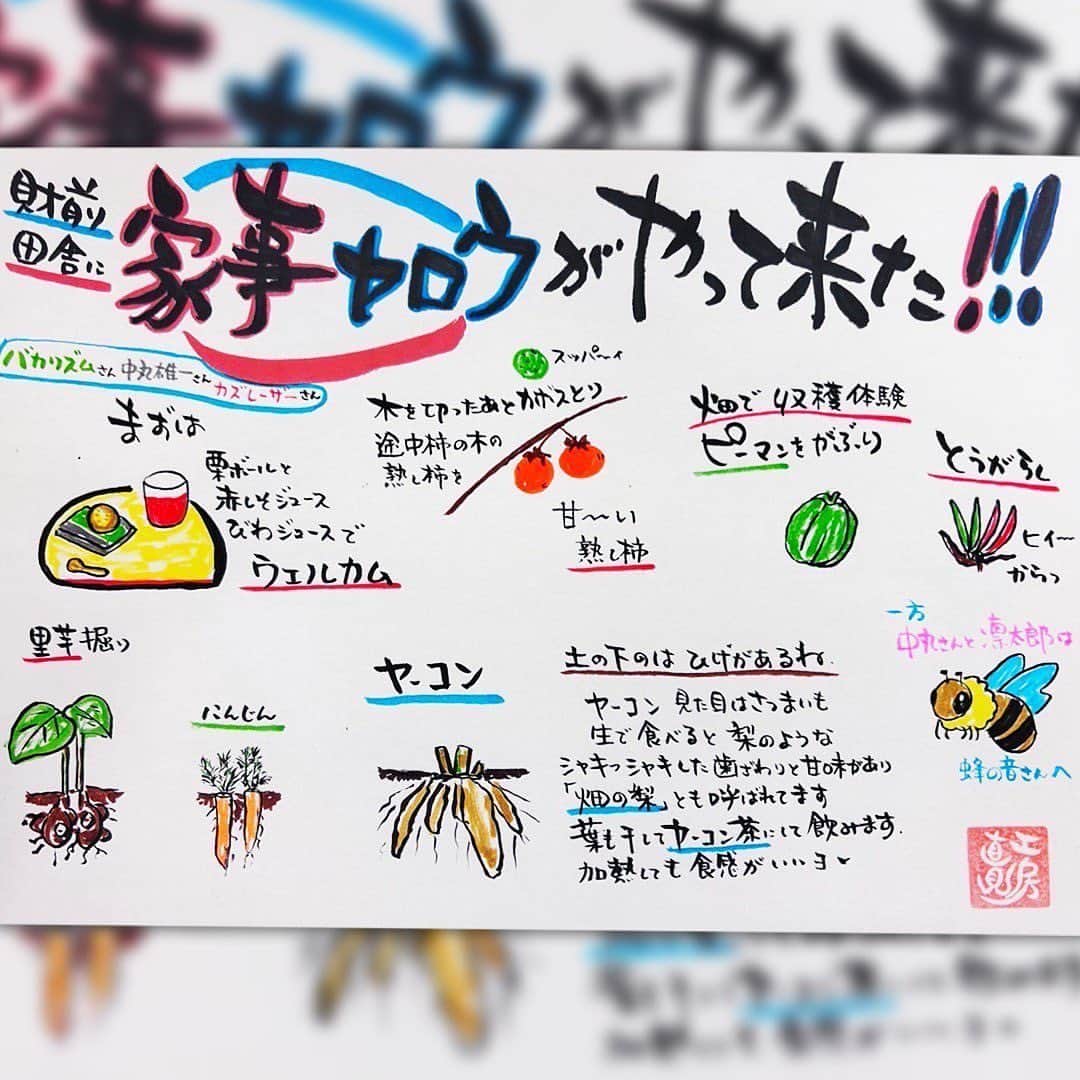 財前り
田舎に
家事ヤロウがやって来た!!!
バカリズムさん 中丸雄一さん カズレーザーさん
まずは
栗ボールと
赤しそジュース
びわジュースで
ウェルカム
スッパーイ
木を切ったあとカボスとり
途中柿の木の
熟し柿を
甘〜い
熟し柿
畑で収穫体験
ピーマンをがぶり
とうがらし
ヒィ〜
からっ
里芋掘り
にんじん
ヤーコン
土の下のは ひげがあるね.
ヤーコン 見た目はさつまいも
生で食べると 梨のような
シャキっシャキした歯ざわりと甘味があり
「畑の梨」とも呼ばれてます
葉も干してヤーコン茶にして飲みます.
加熱しても 食感がいいヨ
一方
中丸さんと凛太郎は
蜂の音さんへ
工房
直見